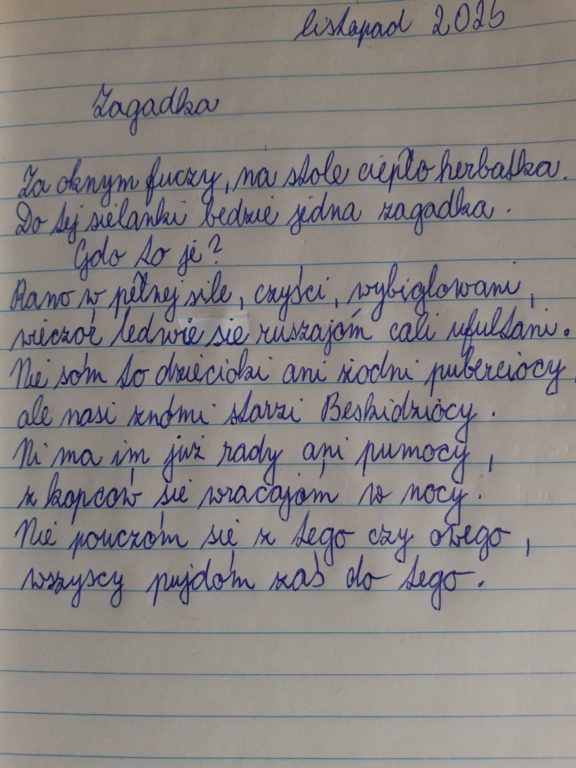 listopad 2025
Zagadka
Za oknym fuczy, na stole ciepło herbatka.
Do tej sielanki bedzie jedna zagadka.
Gdo to je?
Rano w pełnej sile, czyści, wybiglowani,
wieczór ledwie sie ruszajóm cali ufultani.
Nie sóm to dziecioki ani żodni puberciocy,
ale nasi znómi starzi Beskidziocy.
Ni ma im już rady ani pumocy,
z kopców sie wracajóm w nocy.
Nie pouczóm sie z tego czy owego,
wszyscy pujdóm zaś do tego.